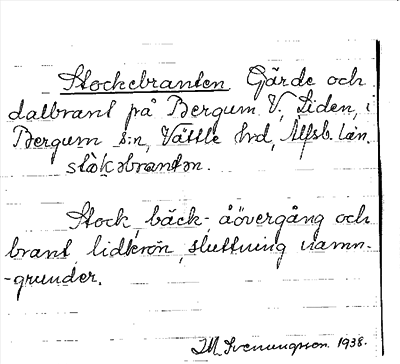 Stockebranten Gärde och
dalbrant på Bergum V, Liden, i
Bergum s:n, Vättle hrd, Älfsb. län.
stòkəbrantən.
Stock, bäck- åövergång och
brant, lidkrön, sluttning namn-
-grunder.
J M Svenungsson 1938.